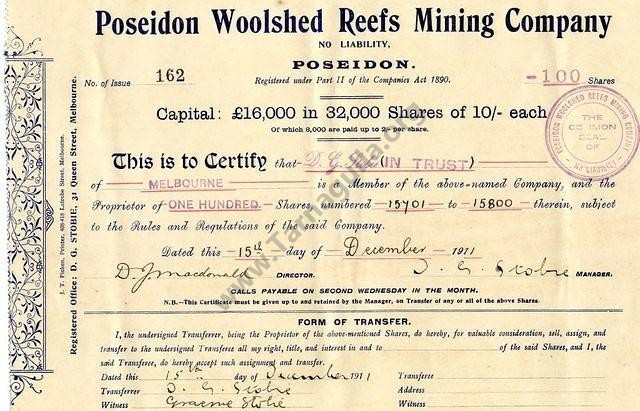 Poseidon Woolshed Reefs Mining Company
NO LIABILITY,
POSEIDON.
No. of Issue 162
Registered under Part II of the Companies Act 1890.
-100 Shares
Capital: £16,000 in 32,000 Shares of 10/- each
Of which 8,000 are paid up to 2/- per share.
POSEIDON WOOLSHED REEFS MINING COMPANY
THE COMMON SEAL OF
NO LIABILITY
This is to Certify that D. G. (IN TRUST)
of MELBOURNE is a Member of the above-named Company, and the
Proprietor of ONE HUNDRED Shares numbered 15701 to 15800 therein, subject
to the Rules and Regulations of the said Company.
Dated this 15th day of December 1911
D. J. Macdonald DIRECTOR. D. G. Stobie MANAGER.
CALLS PAYABLE ON SECOND WEDNESDAY IN THE MONTH.
N.B.—This Certificate must be given up to and retained by the Manager, on Transfer of any or all of the above Shares.
FORM OF TRANSFER.
I, the undersigned Transferrer, being the Proprietor of the above-mentioned Shares, do hereby, for valuable consideration, sell, assign, and
transfer to the undersigned Transferee all my right, title, and interest in and to of the said Shares, and I, the
said Transferee, do hereby accept such assignment and transfer.
Dated this 15th day of December 1911 Transferee
Transferrer D. G. Stobie Address
Witness Graeme Stobie Witness
Registered Office: D. G. STOBIE, 31 Queen Street, Melbourne.
J. T. Picken, Printer, Latrobe Street, Melbourne.
www.Tarnagulla.org